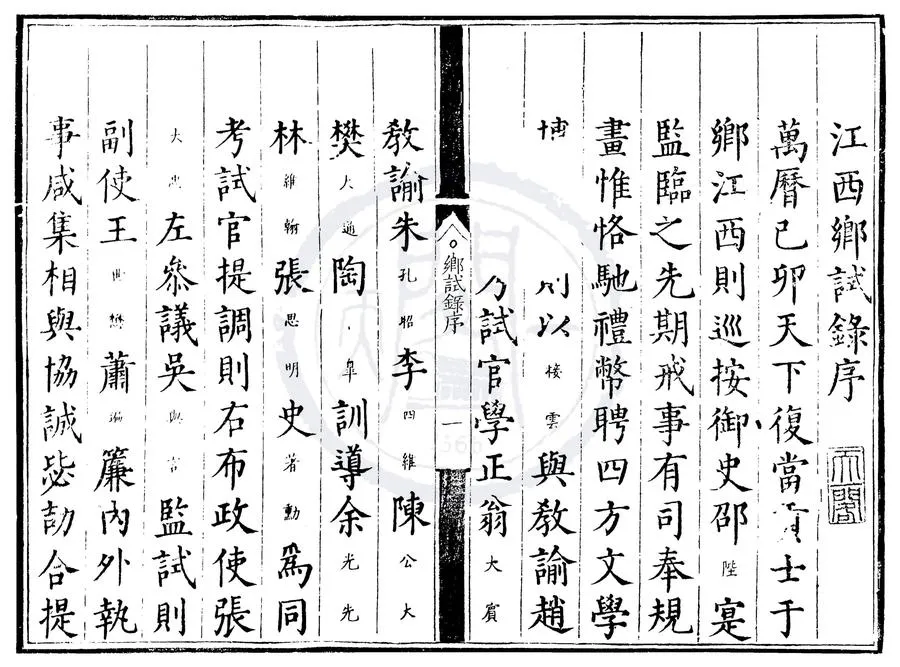 江西鄉試錄序
天閣
萬曆己卯天下復當貢士于
鄉江西則巡按御史邵陛寔
監臨之先期戒事有司奉規
畫惟恪馳禮幣聘四方文學
博 以接雲與教諭趙
乃試官學正翁大賓
鄉試錄序
一
教諭朱孔昭李四維陳公大
樊大通陶阜訓導余光先
林維翰張思明史著勳為同
考試官提調則右布政使張
大忠左叅議吳與言監試則
副使王世懋蕭 簾內外執
事咸集相與協誠毖劼合提